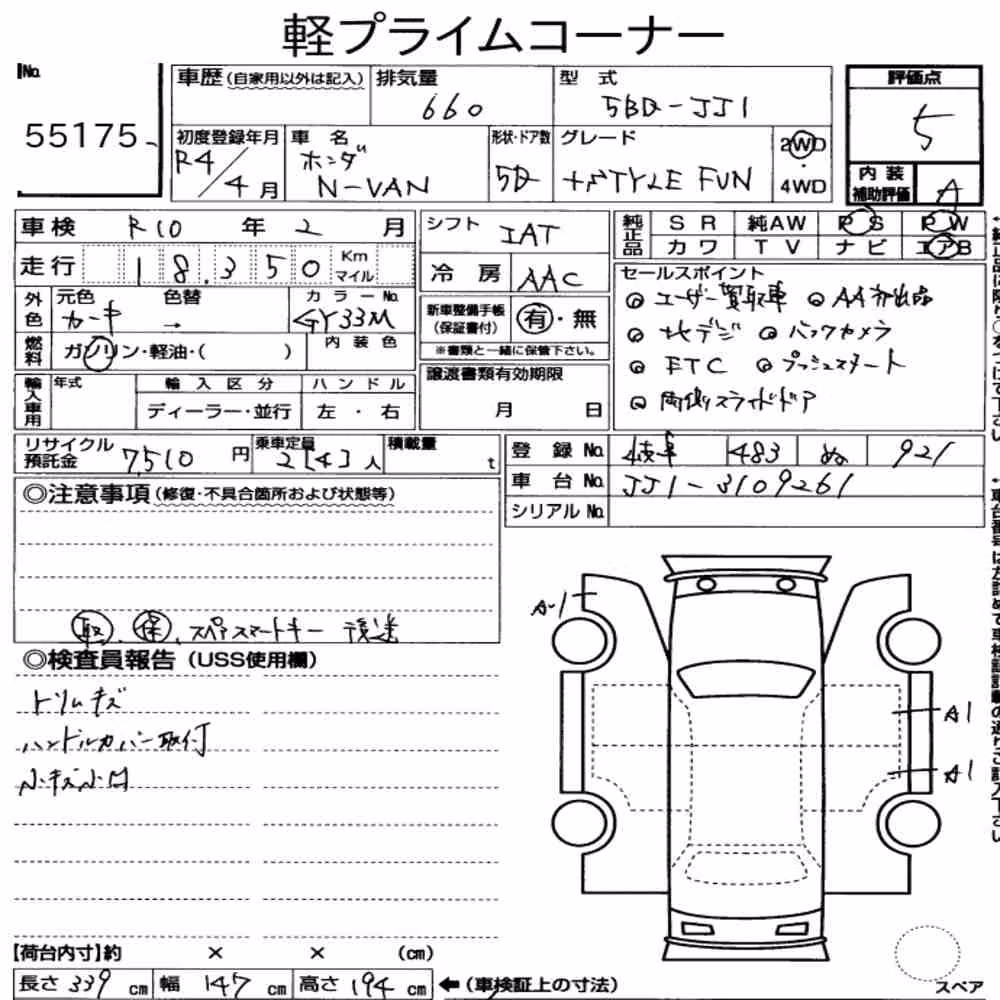 軽プライムコーナー
No. 55175
車歴(自家用以外は記入)
排気量 660
型式 5BD-JJ1
評価点 5
初度登録年月 R4/4月
車名 ホンダ N-VAN
形状・ドア数 5D
グレード +STYLE FUN
2WD・4WD
内装補助評価 A
車検 R10年2月
シフト IAT
純正品 SR 純AW PS PW
カワ TV ナビ エアB
走行 18,350 Km マイル
冷房 AAC
セールスポイント
ユーザー買取車 AA初出品
地デジ バックカメラ
ETC プッシュスタート
両側スライドドア
外色 元色 カーキ 色替 → カラーNo. GY33M
新車整備手帳(保証書付) 有・無
※書類と一緒に保管下さい。
燃料 ガソリン・軽油・( ) 内装色
譲渡書類有効期限 月 日
輸入車用 年式 輸入区分 ハンドル
ディーラー・並行 左・右
リサイクル預託金 7,510円
乗車定員 2[4]人
積載量 t
登録No. 岐阜 483 ぬ 921
車台No. JJ1-3109261
シリアルNo.
◎注意事項(修復・不具合箇所および状態等)
取.保.スペアスマートキー 後送
◎検査員報告(USS使用欄)
トリムキズ
ハンドルカバー取付
小キズ小凹
A-1
A1
A1
【荷台内寸】約 × × (cm)
長さ 339cm 幅 147cm 高さ 194cm ←(車検証上の寸法)
スペア